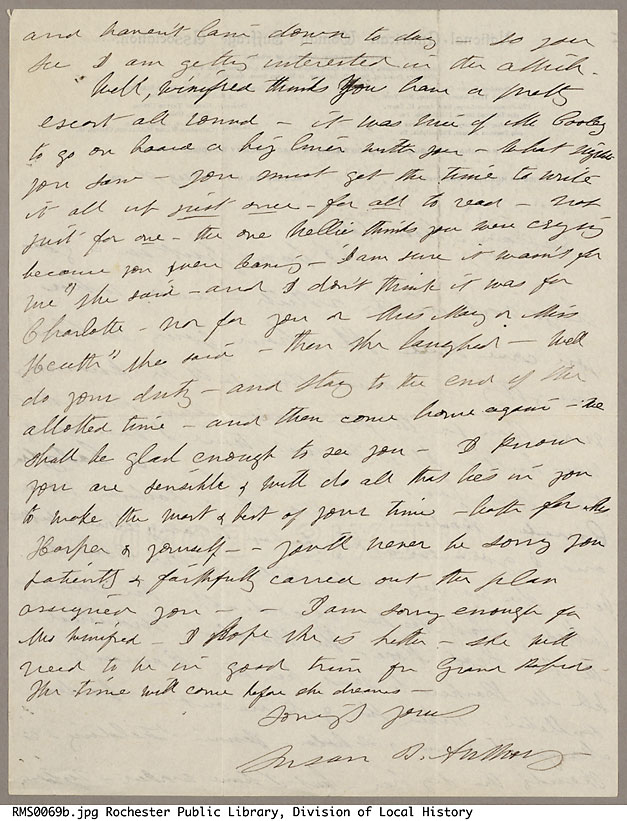 and haven't lain down to day - so you
see I am getting interested in the attick.
Well, Winifred thinks you have a pretty
escort all round - it was nice of Mr Cooley
to go on board a big liner with you - What sights
you saw - you must get the time to write
it all up just once - for all to read - not
just for one - the one Nellie thinks you were crying
because you were leaving - "I am sure it wasn't for
me" she said - and I don't think it was for
Charlotte - nor for you or Miss May or Miss
she said - then she laughed - Well
do your duty - and stay to the end of the
allotted time - and then come home again - we
shall be glad enough to see you - I know
you are sensible & will do all that lies in you
to make the most & best of your time - both for Mrs
Harper & yourself - - you'll never be sorry you
patiently & faithfully carried out the plan
assigned you - - I am sorry enough for
Mrs Winifred - I hope she is better - she will
need to be in good trim for Grand Rapids
The time will come before she dreams -
Lovingly yours
Susan B. Anthony
RMS0069b.jpg Rochester Public Library, Division of Local History